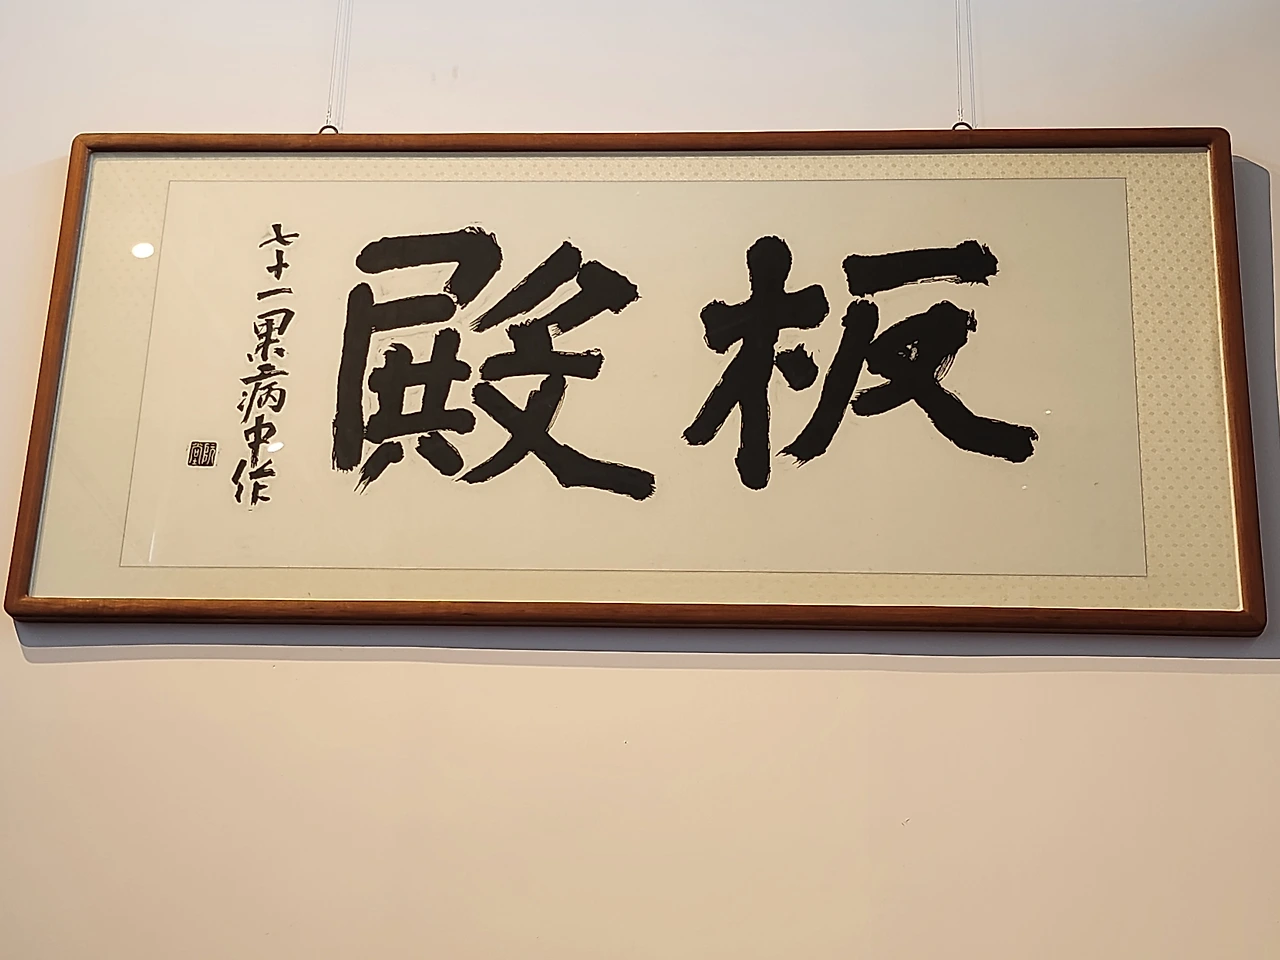 板殿
七十一果病中作
阮堂